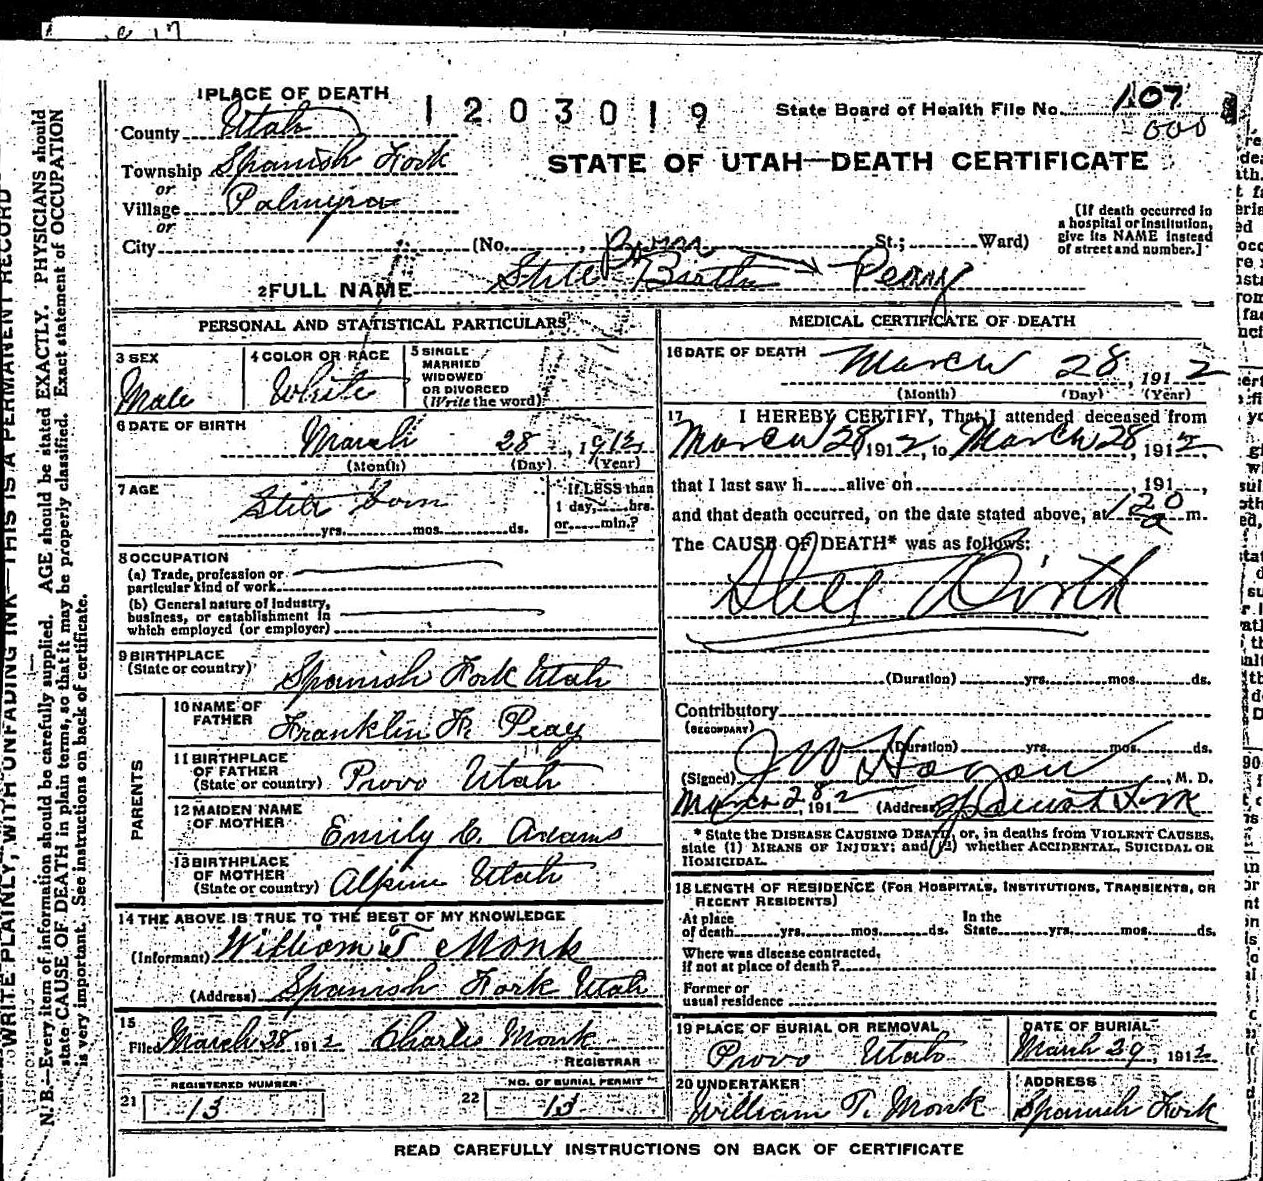 1 PLACE OF DEATH
1203019
State Board of Health File No. 107
000
County Utah
Township Spanish Fork
or
Village Palmyra
or
STATE OF UTAH—DEATH CERTIFICATE
City (No. , St.; Ward)
[If death occurred in
a hospital or institution,
give its NAME instead
of street and number.]
2 FULL NAME Still Birth Peay
PERSONAL AND STATISTICAL PARTICULARS
3 SEX
Male
4 COLOR OR RACE
White
5 SINGLE
MARRIED
WIDOWED
OR DIVORCED
(Write the word)
6 DATE OF BIRTH
March 28, 1912
(Month) (Day) (Year)
7 AGE
Still born
yrs. mos. ds.
If LESS than
1 day, hrs.
or min.?
8 OCCUPATION
(a) Trade, profession or
particular kind of work
(b) General nature of industry,
business, or establishment in
which employed (or employer)
9 BIRTHPLACE
(State or country) Spanish Fork Utah
PARENTS
10 NAME OF
FATHER Franklin Fr. Peay
11 BIRTHPLACE
OF FATHER
(State or country) Provo Utah
12 MAIDEN NAME
OF MOTHER Emily C. Adams
13 BIRTHPLACE
OF MOTHER
(State or country) Alpine Utah
14 THE ABOVE IS TRUE TO THE BEST OF MY KNOWLEDGE
(Informant) William T Monk
(Address) Spanish Fork Utah
15
Filed March 28 1912 Charles Monk
REGISTRAR
REGISTERED NUMBER
21 13
NO. OF BURIAL PERMIT
22 13
MEDICAL CERTIFICATE OF DEATH
16 DATE OF DEATH March 28, 1912
(Month) (Day) (Year)
17 I HEREBY CERTIFY, That I attended deceased from
March 28 1912, to March 28, 1912,
that I last saw h alive on 191 ,
and that death occurred, on the date stated above, at 120 a m.
The CAUSE OF DEATH* was as follows:
Still Birth
(Duration) yrs. mos. ds.
Contributory
(SECONDARY)
(Duration) yrs. mos. ds.
(Signed) J W Hagan, M. D.
March 28 1912 (Address) Spanish Fork
* State the DISEASE CAUSING DEATH, or, in deaths from VIOLENT CAUSES,
state (1) MEANS OF INJURY; and (2) whether ACCIDENTAL, SUICIDAL OR
HOMICIDAL.
18 LENGTH OF RESIDENCE (FOR HOSPITALS, INSTITUTIONS, TRANSIENTS, OR
RECENT RESIDENTS)
At place
of death yrs. mos. ds.
In the
State yrs. mos. ds.
Where was disease contracted,
if not at place of death?
Former or
usual residence
19 PLACE OF BURIAL OR REMOVAL
Provo Utah
DATE OF BURIAL
March 29, 1912
20 UNDERTAKER
William T. Monk
ADDRESS
Spanish Fork
READ CAREFULLY INSTRUCTIONS ON BACK OF CERTIFICATE
WRITE PLAINLY, WITH UNFADING INK—THIS IS A PERMANENT RECORD
N. B.—Every item of information should be carefully supplied. AGE should be stated EXACTLY. PHYSICIANS should
state CAUSE OF DEATH in plain terms, so that it may be properly classified. Exact statement of OCCUPATION
is very important. See instructions on back of certificate.